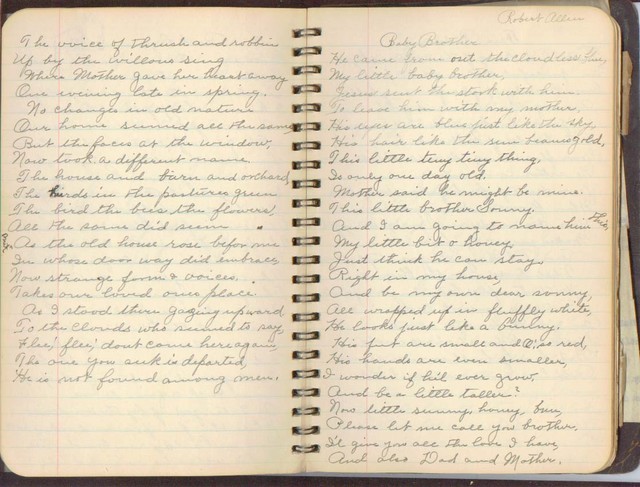 The voice of thrush and robbin
Up by the willows sing
Where Mother gave her heart away
One evening late in spring.
No changes in old nature
Our home seemed all the same
But the faces at the window,
Now took a different name.
The house and barn and orchard,
The herds in the pastures green
The bird the bees the flowers,
All the same did seem
As the old house rose before me
In whose door way did embrace,
Now strange form & voices.
Takes our loved ones place.
As I stood there gazing upward
To the clouds who seemed to say,
Flee, flee, dont come here again,
The one you seek is departed,
He is not found among men.
Robert Allen
Baby Brother
He came from out the cloudless blue,
My little baby brother,
Jesus sent the stork with him
To leave him with my mother,
His eyes are blue just like the sky
His hair like the sun beams gold,
This little tiny tiny thing,
Is only one day old.
Mother said he might be mine.
This little brother Sonny.
And I am going to name him this,
My little bit o honey.
Just think he can stay
Right in my house,
And be my own dear sonny,
All wrapped up in fluffly white,
He looks just like a bunny.
His feet are small and O, so red,
His hands are even smaller,
I wonder if he'll ever grow,
And be a little taller?
Now little sunny, honey, bun,
Please let me call you brother,
I'll give you all the love I have,
And also Dad and Mother.